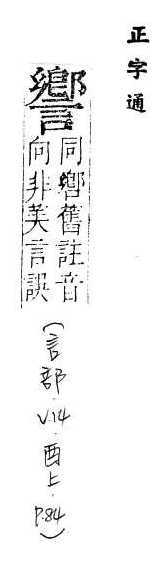 正字通
同響舊註音
向非美言誤
(言部
V.14
酉上
P.84)